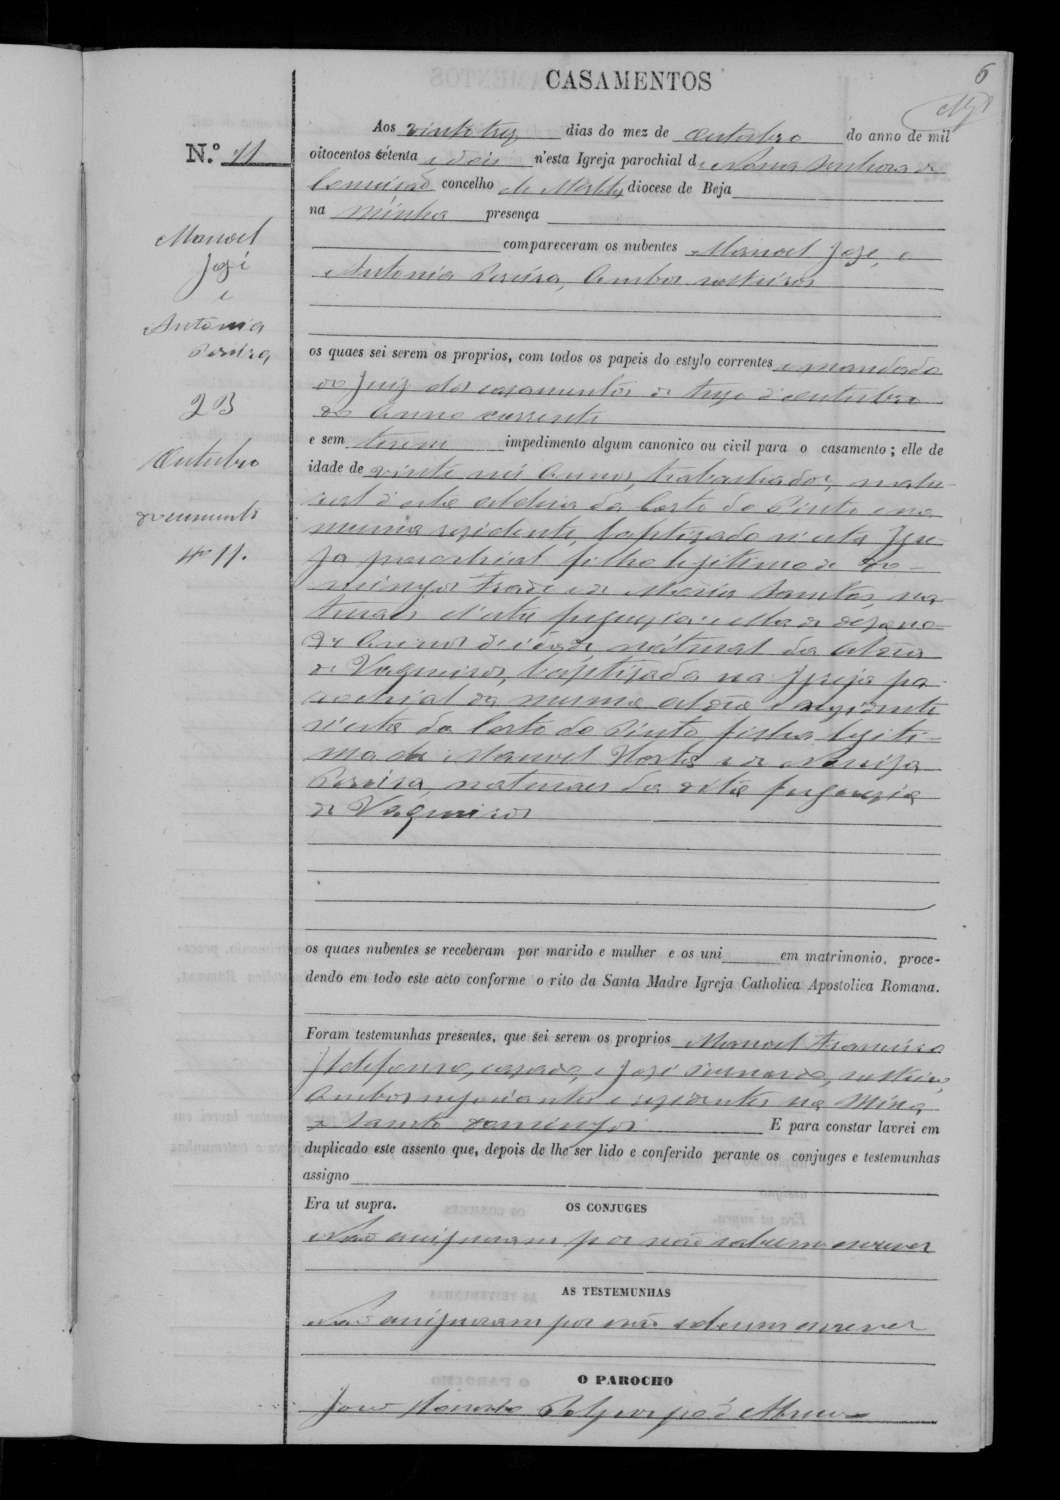 6
CASAMENTOS
N.º 11
Aos vinte trez dias do mez de Outubro do anno de mil
oitocentos setenta e dois n'esta Igreja parochial de Nossa Senhora da
Conceição concelho de Mertola diocese de Beja
na minha presença
compareceram os nubentes Manoel José, e
Antonia Pereira, Ambos solteiros
os quaes sei serem os proprios, com todos os papeis do estylo correntes e mandado
do Juiz dos casamentos de treze d'outubro
do Anno corrente
e sem terem impedimento algum canonico ou civil para o casamento; elle de
idade de vinte seis Annos, trabalhador, natu-
ral d'esta aldeia da Corte do Pinto e na
mesma residente, baptizado n'esta Igre-
ja parochial filho legitimo de Do-
mingos e de Maria Santos, na-
turaes d'esta freguezia e ella de dezano-
ve Annos de idade, natural da aldeia
de Vaqueiros, baptizada na Igreja pa-
rochial da mesma aldeia e rezidente
n'esta da Corte do Pinto, filha legiti-
ma de Manoel Horta e de
Pereira, naturaes da dita freguezia
de Vaqueiros
os quaes nubentes se receberam por marido e mulher e os uni em matrimonio, proce-
dendo em todo este acto conforme o rito da Santa Madre Igreja Catholica Apostolica Romana.
Foram testemunhas presentes, que sei serem os proprios Manoel Francisco
Ildefonso, casado, e José solteiro,
Ambos negociantes e rezidentes na Mina
de Santo Domingos E para constar lavrei em
duplicado este assento que, depois de lhe ser lido e conferido perante os conjuges e testemunhas
assigno
Era ut supra.
OS CONJUGES
Não assignaram por não saberem escrever
AS TESTEMUNHAS
Não assignaram por não saberem escrever
O PAROCHO
Manoel
José
e
Antonia
Pereira
23
Outubro
documentos
nº 11.